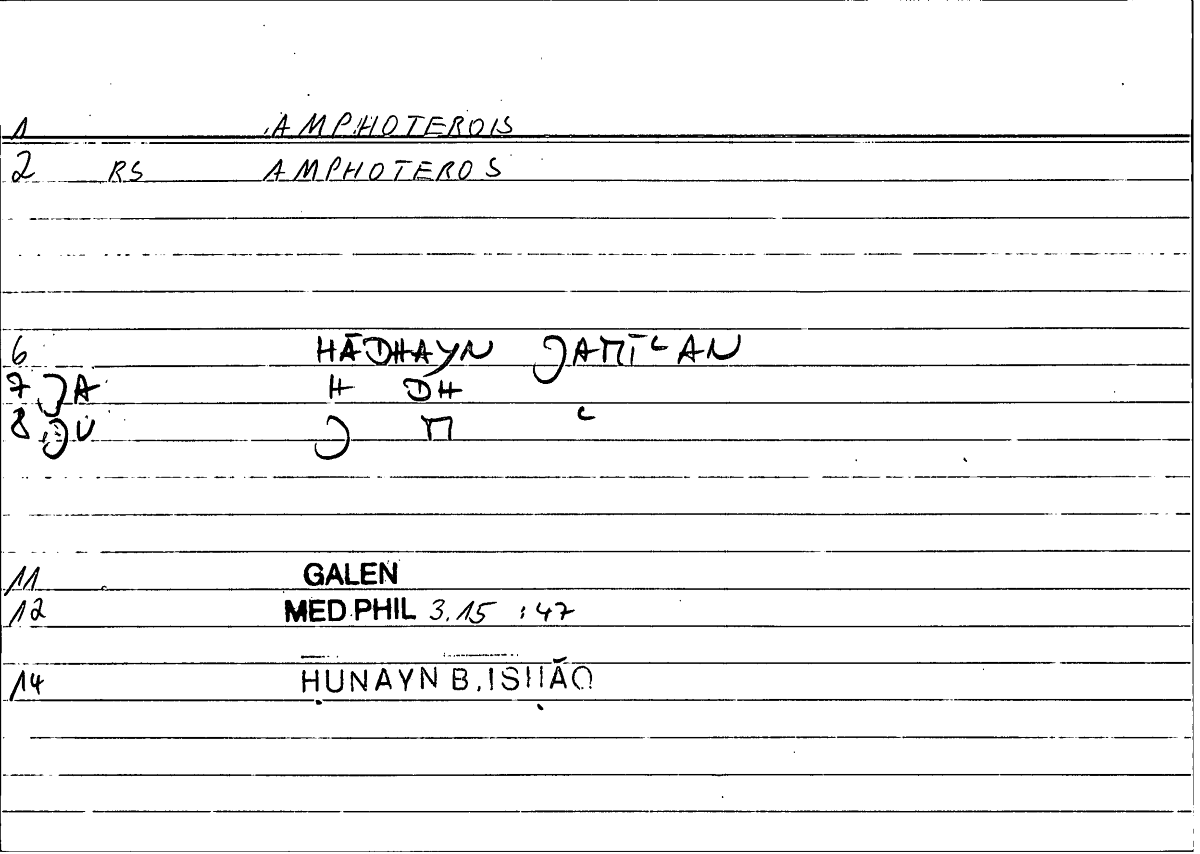 1 AMPHOTEROIS
2 RS AMPHOTEROS
6 HĀDHAYN JAMĪʿAN
7 JA H DH
8 JU J M ʿ
11 GALEN
12 MED.PHIL 3.15 :47
14 ḤUNAYN B.ISḤĀQ